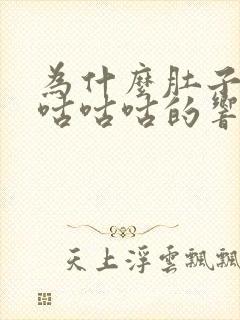 為什麼肚子
咕咕咕的響
天上浮雲飄飄